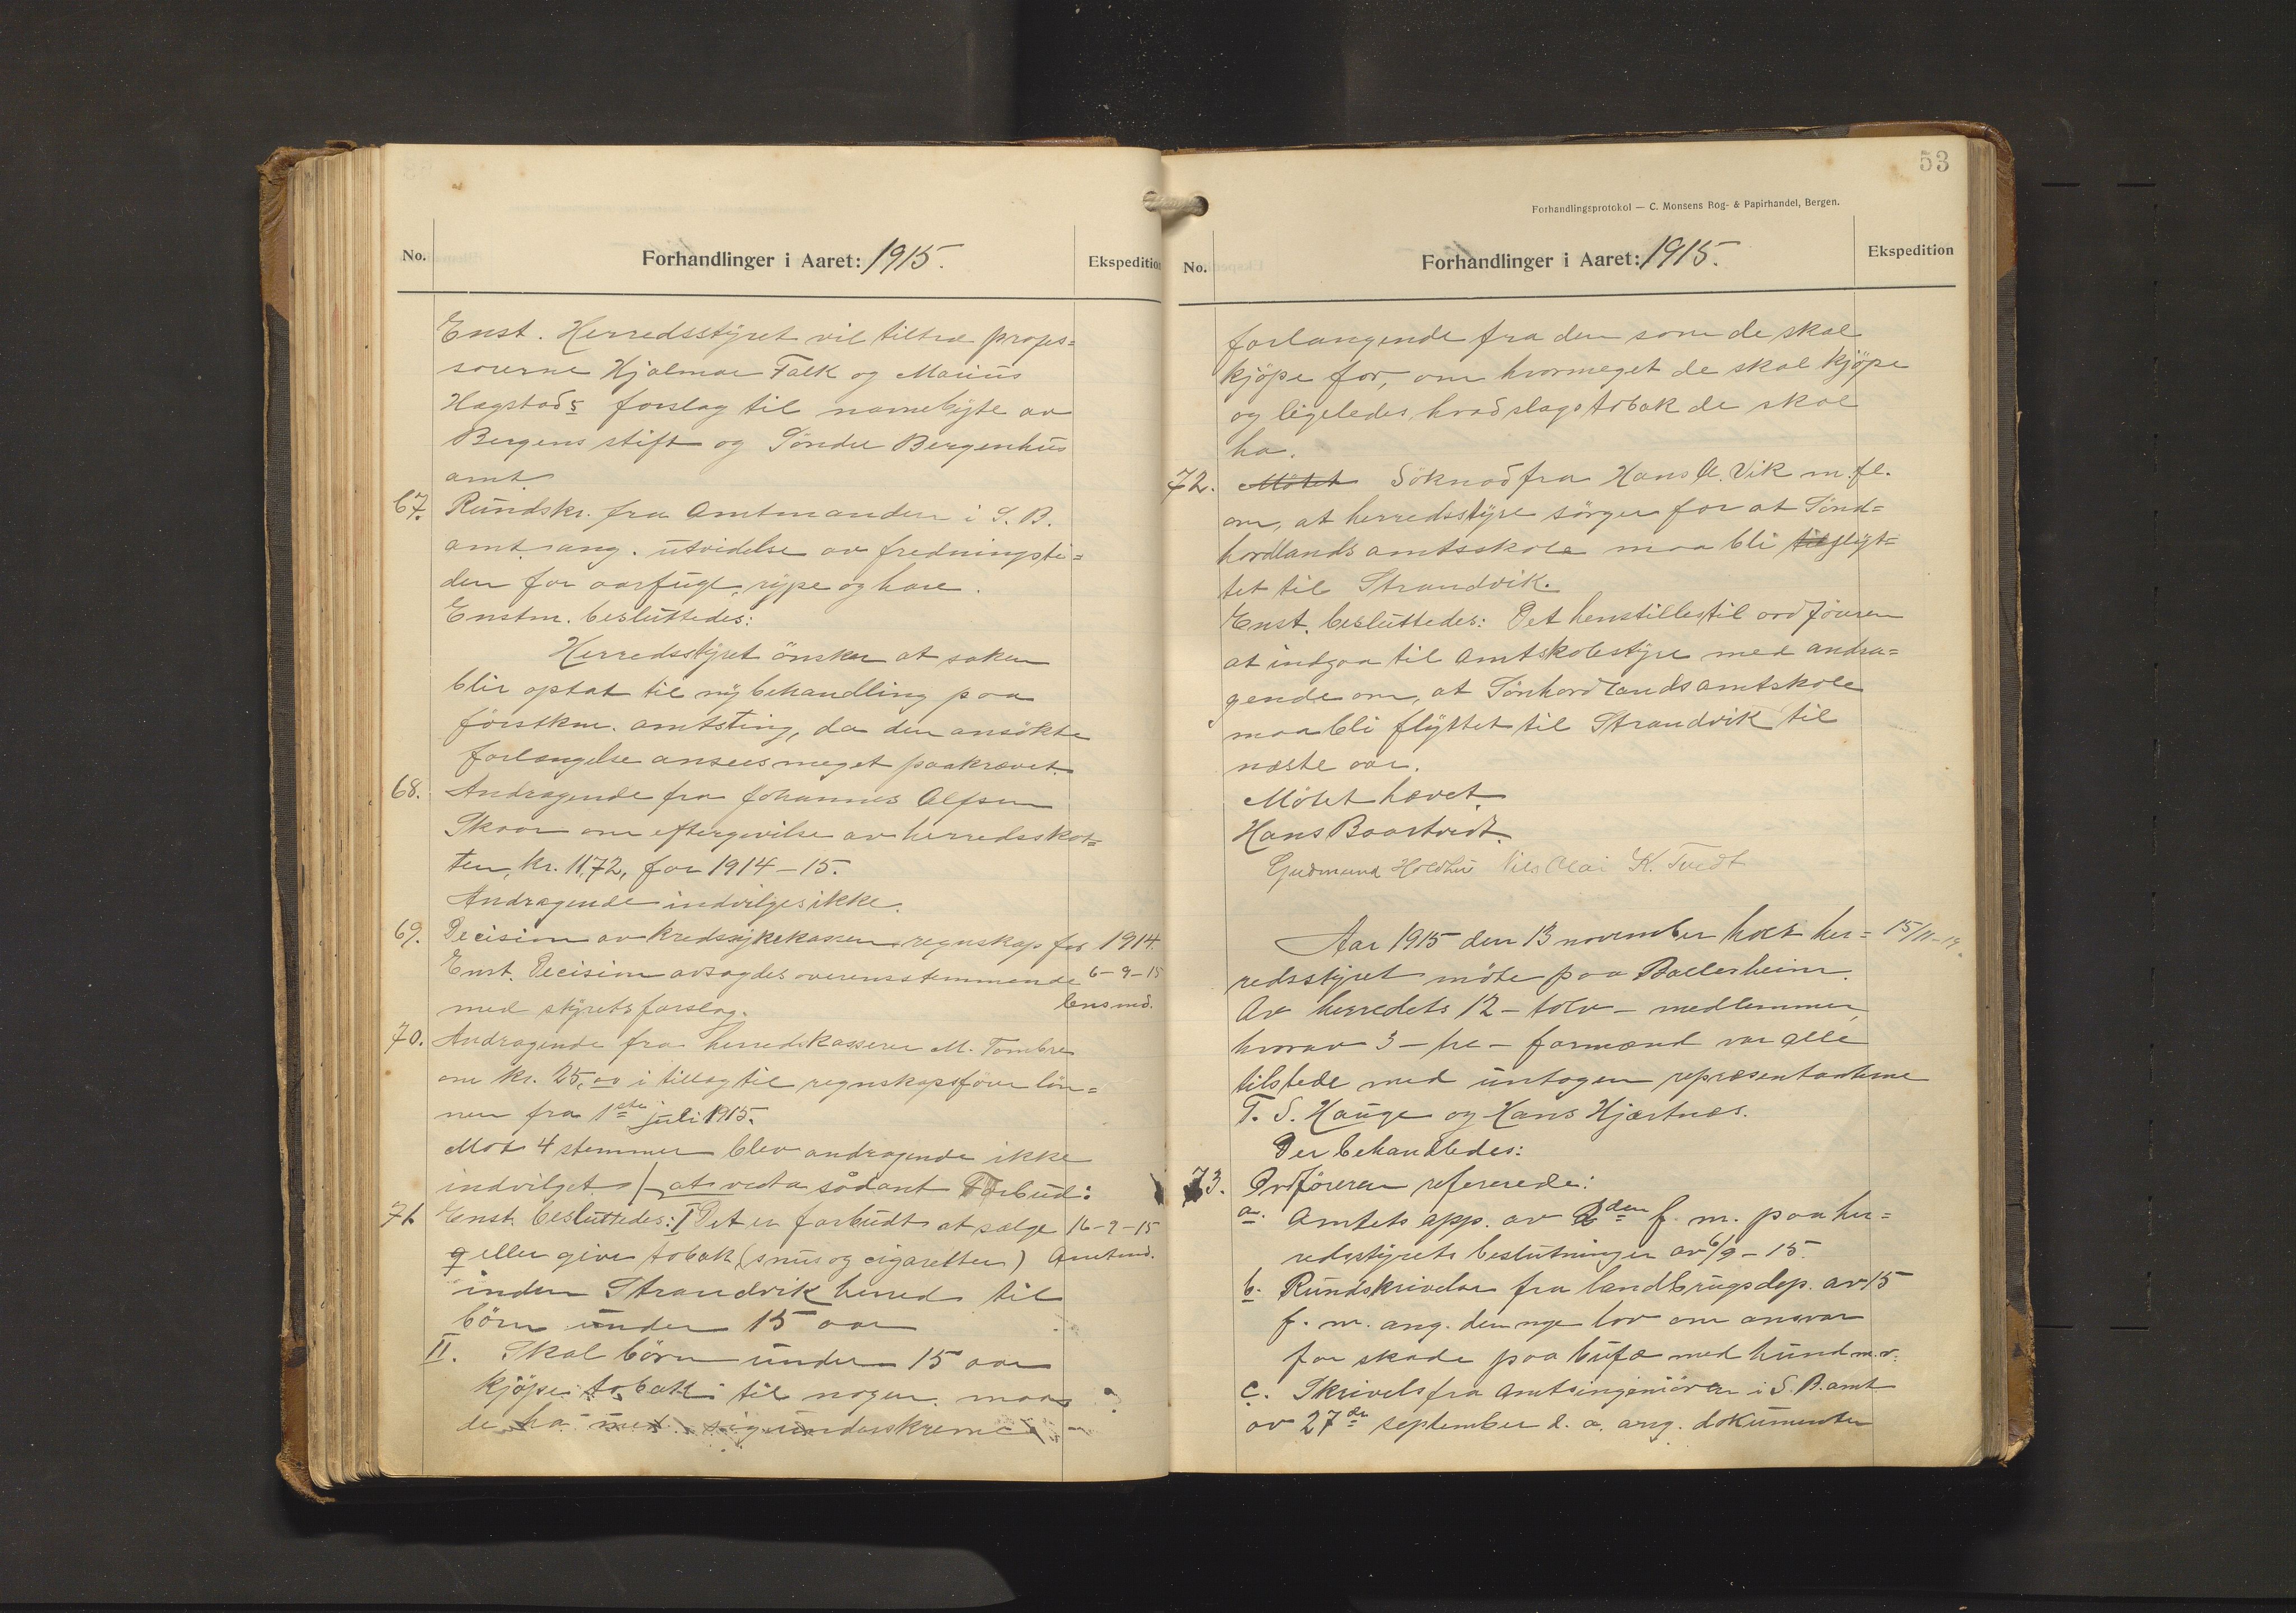 No.
Forhandlinger i Aaret: 1915.
Ekspedition
Enst. Herredsstyret vil tiltræ profes=
sorerne Hjalmar Falk og Marius
Hægstads forslag til namebyte av
Bergens stift og Söndre Bergenhus
amt.
67. Rundskr. fra Amtmanden i S. B.
amt ang. utvidelse av fredningsti=
den for aarfugl, rype og hare.
Enstm. besluttedes:
Herredsstyret önsker at saken
blir optat til ny behandling paa
förstkm. amtsting, da den ansökte
forlængelse ansees meget paakrævet.
68. Andragende fra Johannes Alfsen
Skaar om eftergivelse av herredsskat=
ten, kr. 11,72, for 1914-15.
Andragende indvilges ikke.
69. Decision av kredssykekassens regnskap for 1914
Enst. Decision avsagdes overensstemmende 6-9-15
med styrets forslag. lensmd.
70. Andragende fra herredskasserer M. Tombre
om kr. 25,00 i tillæg til regnskapsförer lön=
nen fra 1ste juli 1915.
Mot 4 stemmer blev andragende ikke
indvilget. / at vedta sådant Forbud:
71. Enst. besluttedes: I Det er forbudt at sælge 16-9-15
eller give tobak (snus og cigaretter) Amtmd.
inden Strandvik herred til
börn under 15 aar
II. Skal börn under 15 aar
kjöpe tobak til nogen, maa
de ha med sig underskreme
53
Forhandlingsprotokol — C. Monsens Bog- & Papirhandel, Bergen.
No.
Forhandlinger i Aaret: 1915.
Ekspedition
forlangende fra den som de skal
kjöpe for, om hvormeget de skal kjöpe
og ligeledes, hvad slags tobak de skal
ha.
72. Mötet Söknad fra Hans A. Vik m. fl.
om, at herredsstyre sörger for at Sönd=
hordlands amtsskole maa bli til flyt=
tet til Strandvik.
Enst. besluttedes: Det henstilles til ordföreren
at indgaa til Amtskolestyre med andra=
gende om, at Sönhordlands amtskole
maa bli flyttet til Strandvik til
næste aar.
Mötet hævet.
Hans Baartvedt.
Gudmund Holdhus Nils Olai K. Tvedt
Aar 1915 den 13 november holdt her= 15/11-15
redsstyret möte paa Ballesheim.
Av herredets 12 - tolv - medlemmer,
hvorav 3 - tre - formænd var alle
tilstede med untagen repræsentanterne
T. S. Hauge og Hans Hjartnæs.
Der behandledes:
73. Ordföreren refererede:
a. Amtets app. av den f. m. paa her=
redsstyrets beslutninger av 6/9-15.
b. Rundskrivelse fra landbrugsdep. av 15
f. m. ang. den nye lov om ansvar
for skade paa bufæ med hund m. v.
c. Skrivels fra Amtsingeniören i S. B. amt
av 27de september d. a. ang. dokumenter